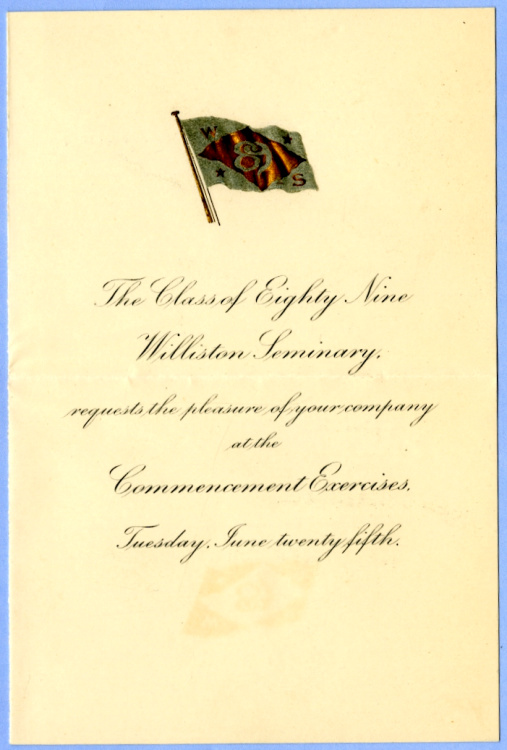 W
89
S
The Class of Eighty Nine
Williston Seminary.
requests the pleasure of your company
at the
Commencement Exercises.
Tuesday, June twenty fifth.